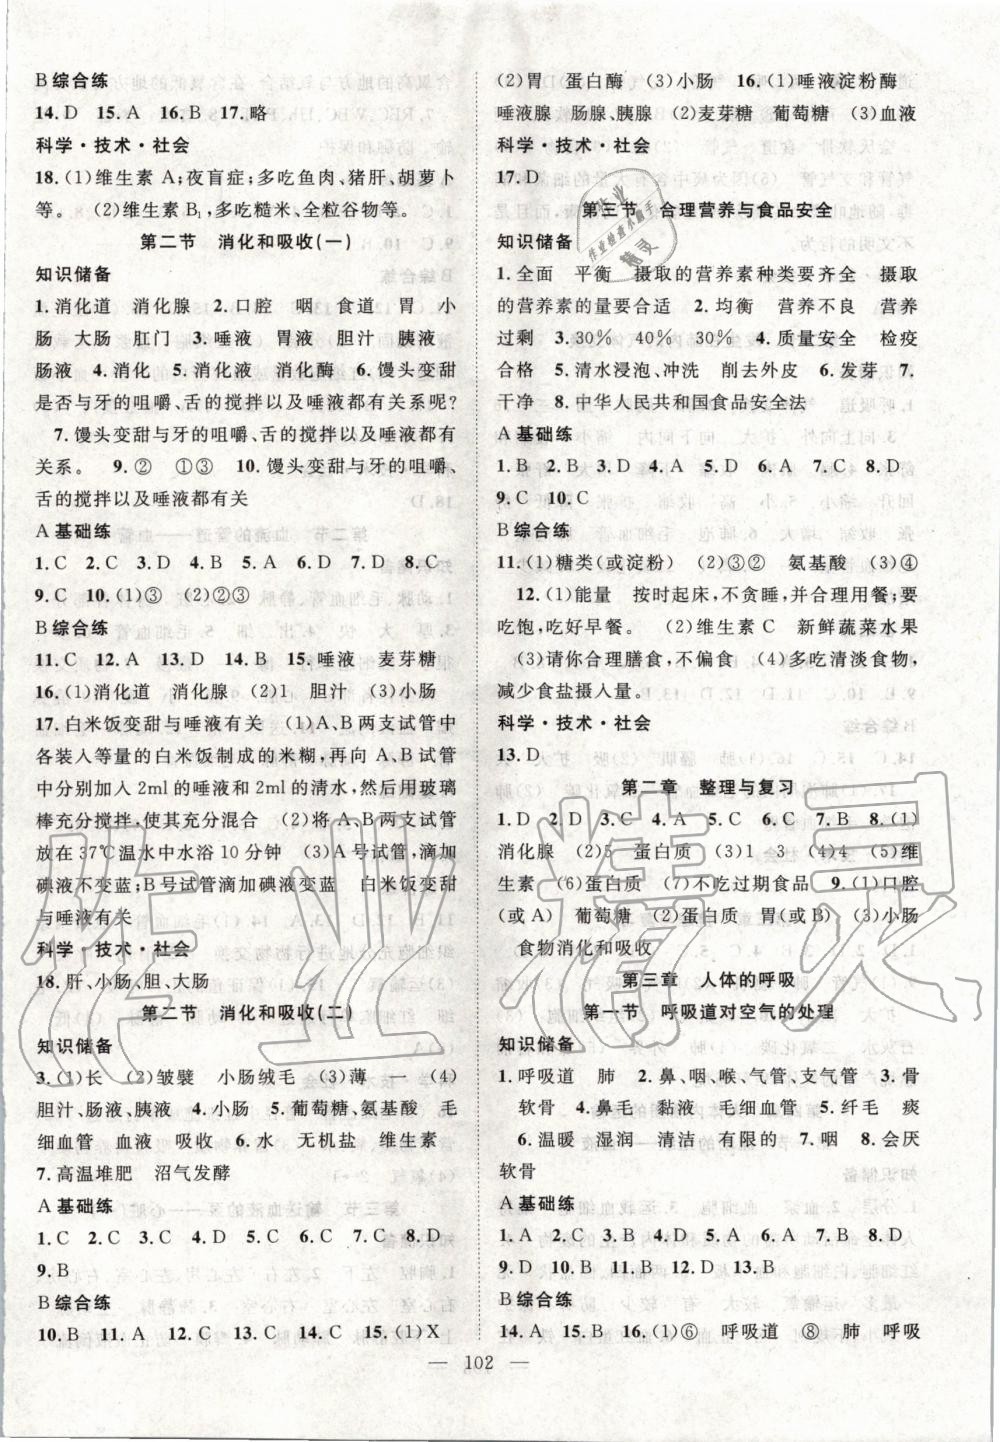 B 综合练
14. D　15. A　16. B　17. 略
科学·技术·社会
18. (1)维生素 A;夜盲症;多吃鱼肉、猪肝、胡萝卜
等。　(2)维生素 B₁,多吃糙米、全粒谷物等。
第二节　消化和吸收(一)
知识储备
1. 消化道　消化腺　2. 口腔　咽　食道　胃　小
肠　大肠　肛门　3. 唾液　胃液　胆汁　胰液
肠液　4. 消化　5. 消化液　消化酶　6. 馒头变甜
是否与牙的咀嚼、舌的搅拌以及唾液都有关系?
7. 馒头变甜与牙的咀嚼、舌的搅拌以及唾液都有
关系。　9. ②　①③　10. 馒头变甜与牙的咀嚼、
舌的搅拌以及唾液都有关
A 基础练
1. C　2. C　3. C　4. D　5. C　6. D　7. D　8. C
9. C　10. (1)③　(2)②③
B 综合练
11. C　12. A　13. D　14. B　15. 唾液　麦芽糖
16. (1)消化道　消化腺　(2)1　胆汁　(3)小肠
17. 白米饭变甜与唾液有关　(1)A、B两支试管中
各装入等量的白米饭制成的米糊,再向 A、B试管
中分别加入 2ml的唾液和 2ml的清水,然后用玻璃
棒充分搅拌,使其充分混合　(2)将 A、B两支试管
放在 37℃温水中水浴 10 分钟　(3)A号试管,滴加
碘液不变蓝;B号试管滴加碘液变蓝　白米饭变甜
与唾液有关
科学·技术·社会
18. 肝、小肠、胆、大肠
第二节　消化和吸收(二)
知识储备
3. (1)长　(2)皱襞　小肠绒毛　(3)薄　一　(4)
胆汁、肠液、胰液　4. 小肠　5. 葡萄糖、氨基酸　毛
细血管　血液　吸收　6. 水　无机盐　维生素
7. 高温堆肥　沼气发酵
A 基础练
1. C　2. D　3. C　4. D　5. B　6. D　7. B　8. D
9. B
B 综合练
10. B　11. A　12. C　13. C　14. C　15. (1)X
(2)胃　蛋白酶　(3)小肠　16. (1)唾液淀粉酶
唾液腺　肠腺、胰腺　(2)麦芽糖　葡萄糖　(3)血液
科学·技术·社会
17. D
第三节　合理营养与食品安全
知识储备
1. 全面　平衡　摄取的营养素种类要齐全　摄取
的营养素的量要合适　2. 均衡　营养不良　营养
过剩　3. 30%　40%　30%　4. 质量安全　检疫
合格　5. 清水浸泡、冲洗　削去外皮　6. 发芽　7.
干净　8. 中华人民共和国食品安全法
A 基础练
1. B　2. B　3. D　4. D　5. D　6. A　7. C　8. D
9. C　10. C
B 综合练
11. (1)糖类(或淀粉)　(2)③②　氨基酸　(3)④
12. (1)能量　按时起床,不贪睡,并合理用餐;要
吃饱,吃好早餐。　(2)维生素 C　新鲜蔬菜水果
(3)请你合理膳食,不偏食　(4)多吃清淡食物,
减少食盐摄人量。
科学·技术·社会
13. D
第二章　整理与复习
1. D　2. D　3. B　4. A　5. C　6. C　7. B　8. (1)
消化腺　(2)5　蛋白质　(3)1　3　(4)4　(5)维
生素　(6)蛋白质　(7)不吃过期食品　9. (1)口腔
(或 A)　葡萄糖　(2)蛋白质　胃(或 B)　(3)小肠
食物消化和吸收
第三章　人体的呼吸
第一节　呼吸道对空气的处理
知识储备
1. 呼吸道　肺　2. 鼻、咽、喉、气管、支气管　3. 骨
软骨　4. 鼻毛　黏液　毛细血管　5. 纤毛　痰
6. 温暖　湿润　清洁　有限的　7. 咽　8. 会厌
软骨
A 基础练
1. A　2. C　3. B　4. A　5. A　6. C　7. B　8. A
9. D　10. B　11. B　12. D　13. A
B 综合练
14. A　15. B　16. (1)⑥　呼吸道　⑧　肺　呼吸
— 102 —
作业精灵